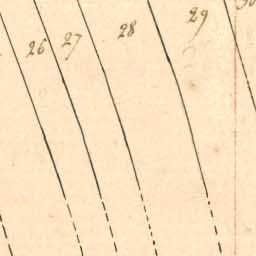 26 27 28 29